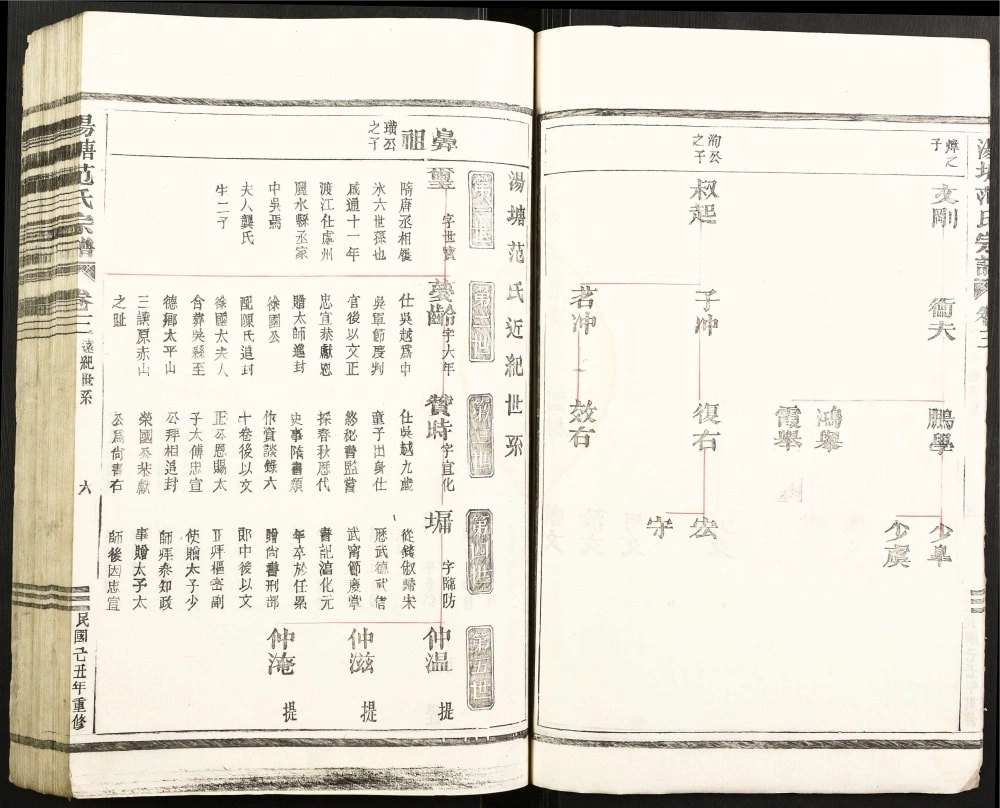 湯塘范氏宗譜
卷三
煒之子
文剛
衝夫
鵬舉
少皐
少虞
鴻舉
霞舉
洵公之子
叔起
子冲
復右
宏
宇
茗冲
效右
湯塘范氏近紀世系
第一世
第二世
第三世
第四世
第五世
鼻祖
璜公之子
璽
字世寶
隋唐丞相履
氷六世孫也
咸通十一年
渡江仕處州
麗水縣丞家
中吳焉
夫人龔氏
生二子
夢齡
字大年
仕吳越為中
吳軍節度判
官後以文正
忠宣恭獻恩
贈太師進封
徐國公
配陳氏追封
徐國太夫人
合葬吳縣至
德鄉太平山
三讓原赤山
之趾
贊時
字宜化
仕吳越九歲
童子出身仕
終秘書監嘗
採春秋歷代
史事隋書類
作資談錄六
十卷後以文
正公恩賜太
子太傅忠宣
公拜相追封
榮國公恭獻
公為尚書右
墉
字臨防
從錢俶歸宋
歷武德武信
武甯節度掌
書記淳化元
年卒於任累
贈尚書刑部
郎中後以文
正拜樞密副
使贈太子少
師拜參知政
事贈太子太
師後因忠宣
仲溫
提
仲滋
提
仲淹
提
湯塘范氏宗譜
卷三
遠紀世系
六
民國己丑年重修